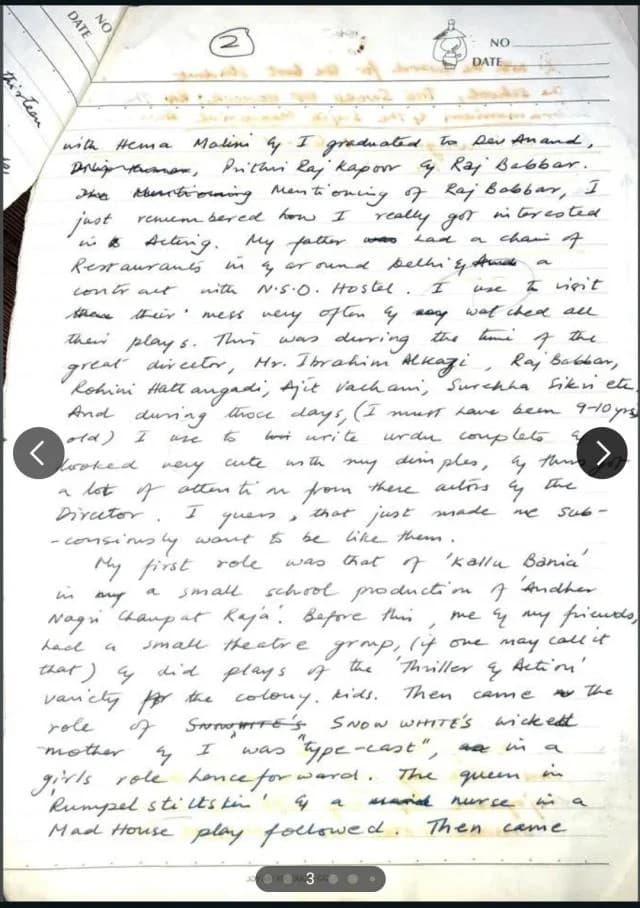 NO
DATE
thirteen
2
NO
DATE
with Hema Malini & I graduated to Dev Anand,
Dilip Kumar, Prithvi Raj Kapoor & Raj Babbar.
The Mentioning Mentioning of Raj Babbar, I
just remembered how I really got interested
in Acting. My father was had a chain of
Restaurants in & around Delhi & a
contract with N.S.D. Hostel. I use to visit
their mess very often & watched all
their plays. This was durring the time of the
great director, Mr. Ibrahim Alkazi, Raj Babbar,
Rohini Hattangadi, Ajit Vachani, Surekha Sikri etc.
And during those days, (I must have been 9-10 yrs
old) I use to write urdu couplets &
looked very cute with my dimples, & thus got
a lot of attention from these actors & the
Director. I guess, that just made me sub-
-consiously want to be like them.
My first role was that of 'Kallu Bania'
in my a small school production of 'Andher
Nagri Chaupat Raja'. Before this, me & my friends,
had a small theatre group, (if one may call it
that) & did plays of the 'Thriller & Action'
variety for the colony. kids. Then came the
role of SNOWHITE'S SNOW WHITE'S wicked
mother & I "was "type-cast", in a
girls role henceforward. The queen in
'Rumpelstiltskin' & a maid nurse in a
Mad House play followed. Then came
3